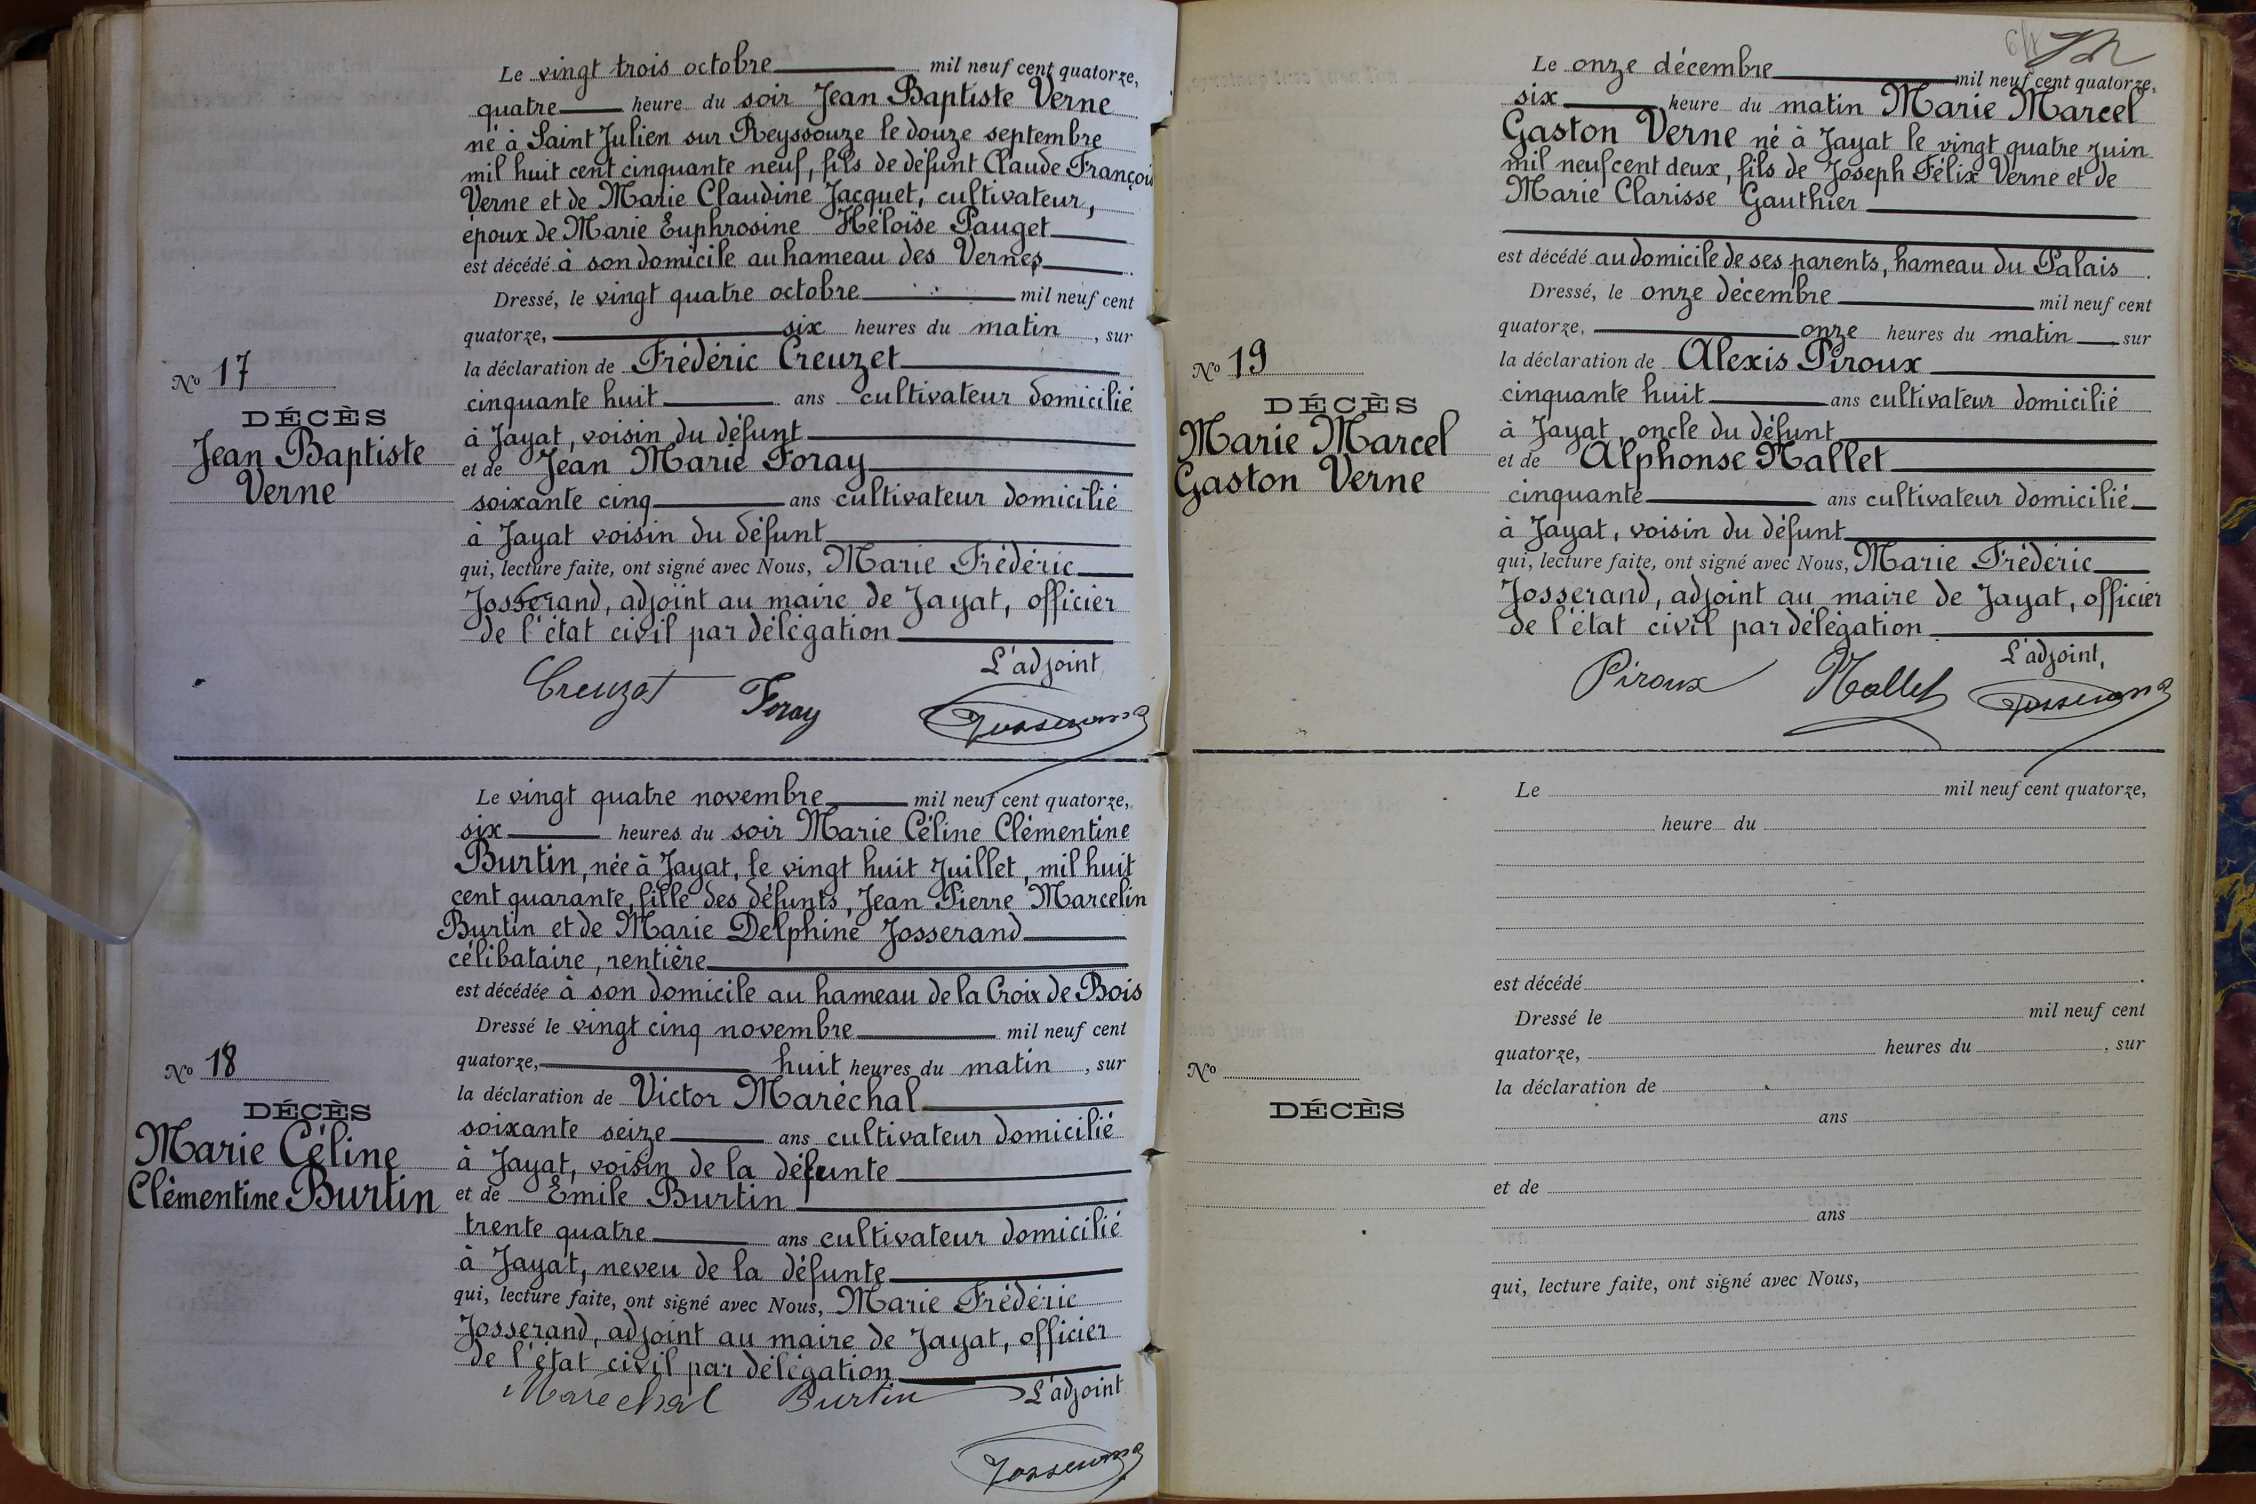 Le vingt trois octobre mil neuf cent quatorze,
quatre heure du soir Jean Baptiste Verne
né à Saint Julien sur Reyssouze le douze septembre
mil huit cent cinquante neuf, fils de défunt Claude François
Verne et de Marie Claudine Jacquet, cultivateur,
époux de Marie Euphrosine Héloïse Pauget
est décédé à son domicile au hameau des Vernes
Dressé, le vingt quatre octobre mil neuf cent
quatorze, six heures du matin, sur
No 17
la déclaration de Frédéric Creuzet
cinquante huit ans cultivateur domicilié
DÉCÈS
à Jayat, voisin du défunt
Jean Baptiste
et de Jean Marie Foray
Verne
soixante cinq ans cultivateur domicilié
à Jayat voisin du défunt
qui, lecture faite, ont signé avec Nous, Marie Frédéric
Josserand, adjoint au maire de Jayat, officier
de l'état civil par délégation
L'adjoint,
Creuzet Foray Josserand
Le vingt quatre novembre mil neuf cent quatorze,
six heures du soir Marie Céline Clémentine
Burtin, née à Jayat, le vingt huit Juillet, mil huit
cent quarante, fille des défunts, Jean Pierre Marcelin
Burtin et de Marie Delphine Josserand
célibataire, rentière
est décédée à son domicile au hameau de la Croix de Bois
Dressé le vingt cinq novembre mil neuf cent
quatorze, huit heures du matin, sur
No 18
la déclaration de Victor Maréchal
DÉCÈS
soixante seize ans cultivateur domicilié
Marie Céline
à Jayat, voisin de la défunte
Clémentine Burtin
et de Emile Burtin
trente quatre ans cultivateur domicilié
à Jayat, neveu de la défunte
qui, lecture faite, ont signé avec Nous, Marie Frédéric
Josserand, adjoint au maire de Jayat, officier
de l'état civil par délégation
Maréchal Burtin L'adjoint
Josserand
Le onze décembre mil neuf cent quatorze,
six heure du matin Marie Marcel
Gaston Verne né à Jayat le vingt quatre juin
mil neuf cent deux, fils de Joseph Félix Verne et de
Marie Clarisse Gauthier
est décédé au domicile de ses parents, hameau du Palais.
Dressé, le onze décembre mil neuf cent
quatorze, onze heures du matin sur
No 19
la déclaration de Alexis Piroux
cinquante huit ans cultivateur domicilié
DÉCÈS
à Jayat, oncle du défunt
Marie Marcel
et de Alphonse Mallet
Gaston Verne
cinquante ans cultivateur domicilié
à Jayat, voisin du défunt
qui, lecture faite, ont signé avec Nous, Marie Frédéric
Josserand, adjoint au maire de Jayat, officier
de l'état civil par délégation
L'adjoint,
Piroux Mallet Josserand
Le mil neuf cent quatorze,
heure du
est décédé .
Dressé le mil neuf cent
quatorze, heures du , sur
No
la déclaration de
DÉCÈS
ans
et de
ans
qui, lecture faite, ont signé avec Nous,